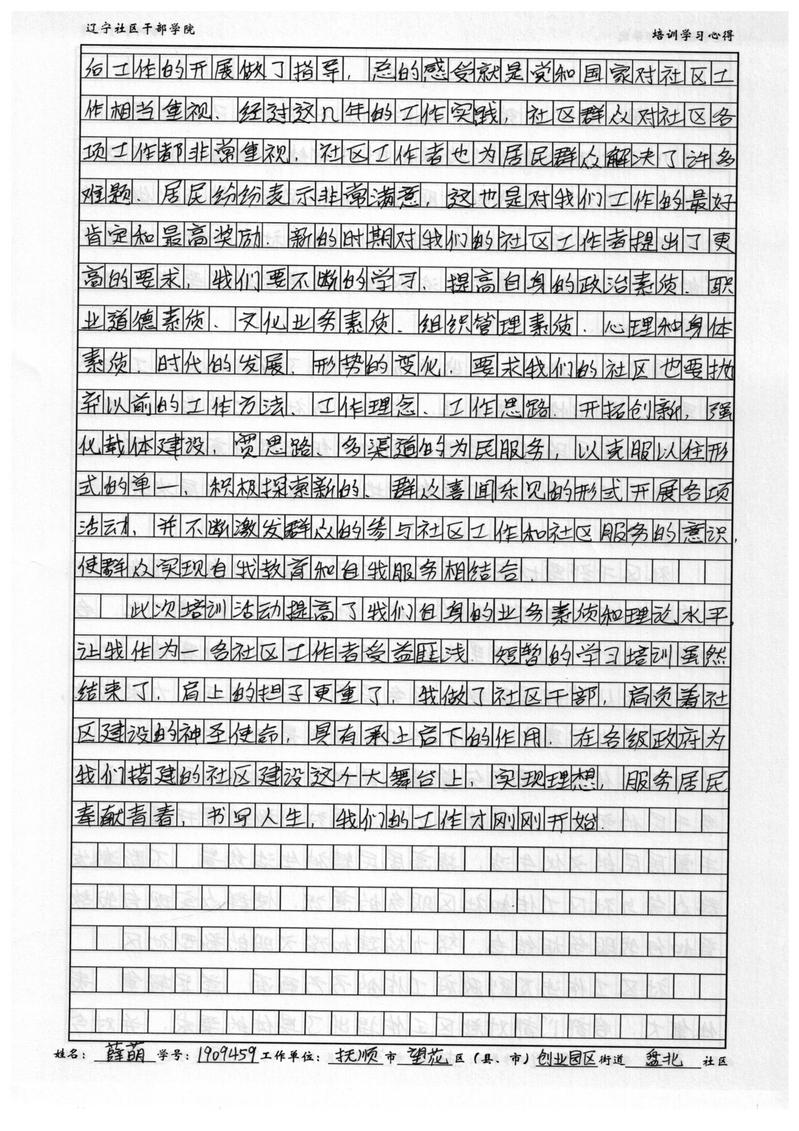 辽宁社区干部学院 培训学习心得
后工作的开展做了指导，总的感受就是党和国家对社区工
作相当重视、经过这几年的工作实践，社区群众对社区各
项工作都非常重视，社区工作者也为居民群众解决了许多
难题、居民纷纷表示非常满意，这也是对我们工作的最好
肯定和最高奖励.新的时期对我们的社区工作者提出了更
高的要求，我们要不断的学习、提高自身的政治素质、职
业道德素质、文化业务素质、组织管理素质、心理和身体
素质，时代的发展、形势的变化、要求我们的社区也要抛
弃以前的工作方法、工作理念、工作思路，开拓创新，强
化载体建设、贾思路、多渠道的为民服务，以克服以往形
式的单一、积极探索新的、群众喜闻乐见的形式开展各项
活动，并不断激发群众的参与社区工作和社区服务的意识，
使群众实现自我教育和自我服务相结合
此次培训活动提高了我们自身的业务素质和理论水平，
让我作为一名社区工作者受益匪浅.短暂的学习培训虽然
结束了，肩上的担子更重了，我做了社区干部，肩负着社
区建设的神圣使命，具有承上启下的作用.在各级政府为
我们搭建的社区建设这个大舞台上，实现理想，服务居民
奉献青春，书写人生，我们的工作才刚刚开始.
姓名：薛萌 学号：1909459 工作单位：抚顺市望花区（县、市）创业园区街道 盘北 社区